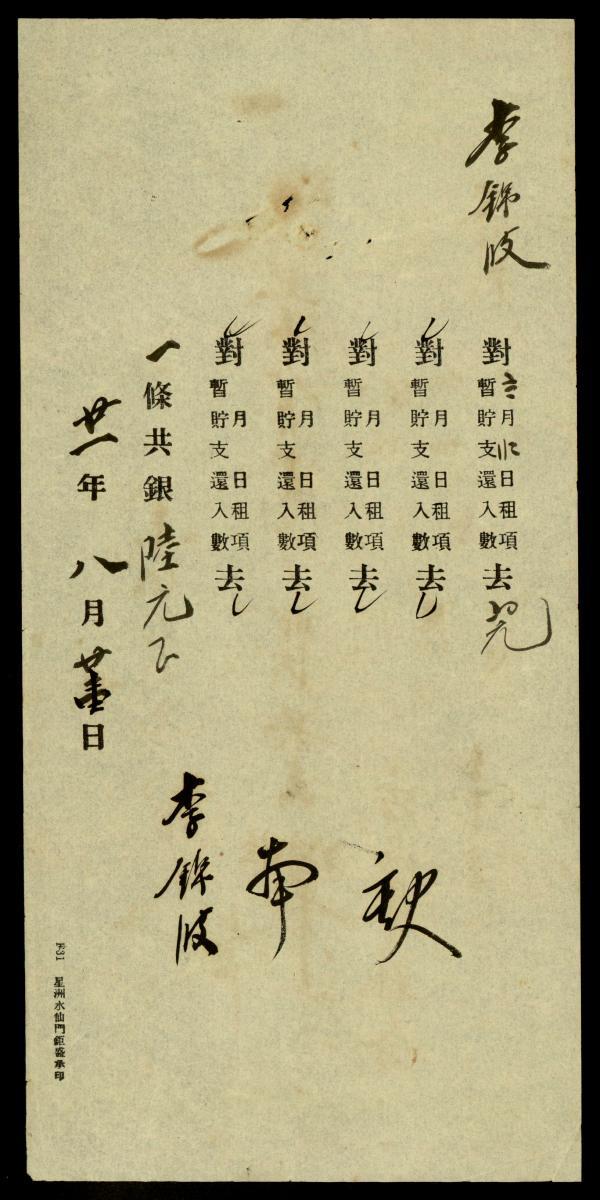 李錦波
對 月 日租項 暫貯支還入數 去
對 月 日租項 暫貯支還入數 去
對 月 日租項 暫貯支還入數 去
對 月 日租項 暫貯支還入數 去
對 月 日租項 暫貯支還入數 去
一條共銀陸元正
廿一年八月 日
李錦波
F31 星洲水仙門鉅盛承印